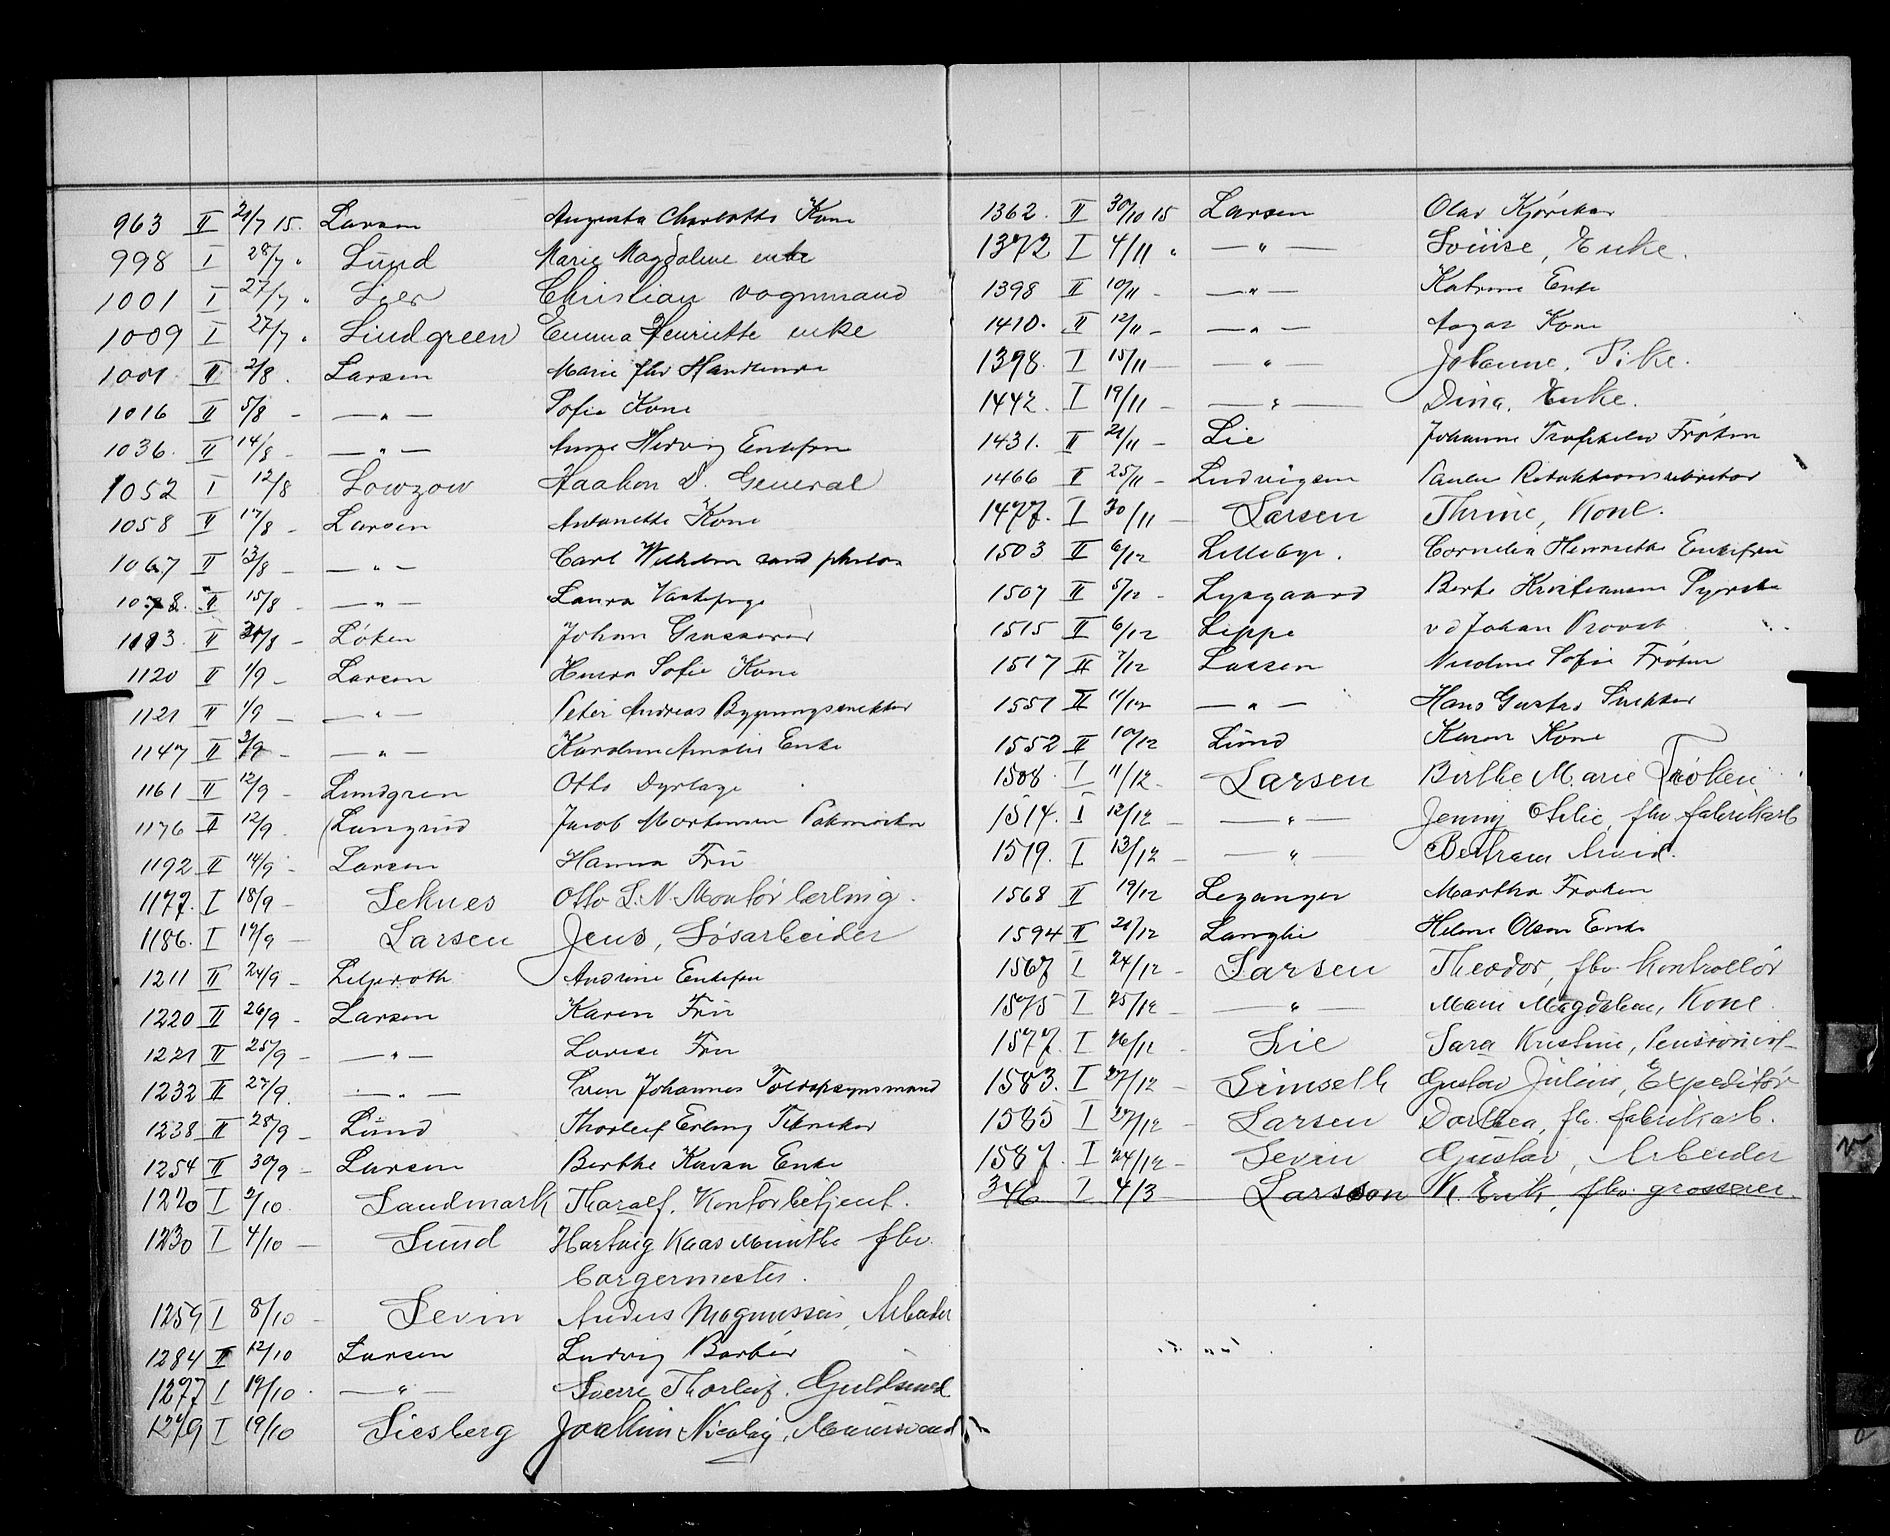 963 II 21/7 15. Larsen Augusta Charlotte Kone
998 I 28/7 " Lund Marie Magdalene enke
1001 I 27/7 " Lier Christian vognmand
1009 I 27/7 " Lindgreen Emma Henriette enke
1001 II 2/8 . Larsen Marie fhv
1016 II 5/8 - — " — Sofie Kone
1036. II 14/8 - — " — Anne Hedvig Enkefru
1052 I 12/8 Lowzow Haakon D. General
1058 II 17/8 - Larsen Antonette Kone
1067 II 13/8 - — " — Carl Wilhelm cand philos
1078. II 15/8 - — " — Laura
1113. II 31/8 - Löken Johan Grosserer
1120 II 1/9 - Larsen Sofie Kone
1121 II 1/9 - — " — Peter Andreas
1147 II 3/9 - — " — Karoline Amalie Enke
1161 II 12/9 - Lundgren Otto Dyrlæge
1176 II 12/9 . Langrud Jacob Mortensen
1192 II 14/9 - Larsen Hanna Fru
1177. I 18/9 - Leknes Otto L. N. Montör lærling.
1186. I 19/9 - Larsen Jens, Lösarbeider
1211 II 24/9 - Liljeroth Andrine Enkefru
1220 II 26/9 - Larsen Karen Fru
1221 II 25/9 - — " — Lovise Fru
1232 II 27/9. — " — Sven Johannes Toldopsynsmand
1238 II 28/9 - Lund Thorleif Erling Tekniker
1254 II 30/9 - Larsen Berthe Karen Enke
1220 I 2/10 Landmark Tharalf. Kontorbetjent.
1230 I 4/10 - Lund Hartvig Kaas Munthe fhv.
borgermester.
1259 I 8/10 - Levin Anders Magnussen, Arbeider
1284 II 12/10 Larsen Ludvig Barber
1277 I 19/10 . — " — Sverre Thorleif. Guldsmed
1279 I 19/10 Liesberg Joakim Nicolay, Murersvend
1362. II 30/10 15 Larsen Olav
1372 I 4/11 " — " — Louise, Enke.
1398 II 10/11 - — " — Katrine Enke
1410. II 12/11 - — " — Aagot Kone
1398. I 15/11 — — " — Johanne, Pike.
1442. I 19/11 - — " — Dina, Enke.
1431. II 21/11 - Lie Johanne Fröken
1466 II 25/11 - Ludvigsen
1477. I 30/11 - Larsen Thrine, Kone.
1503 II 6/12 Lilleby. Cornelia Henriette Enkefru
1507 II 5/12 - Lysgaard Berte Kristiansen
1515 II 6/12 Lippe v d Johan Provst
1517 II 7/12 Lassen Sofie Fröken
1551 II 11/12 — " — Hans Gustav Snekker
1552 II 10/12 Lund Karen Kone
1508. I 11/12 - Larsen Birthe Marie Fröken
1514. I 12/12 — " — Jenny Otilie, fhv. fabrikarb
1519. I 13/12 - — " — Bertram Arvid.
1568 II 19/12 Lezanger Martha Fröken
1594 II 21/12 Langlie Helene Olsen Enke
1567 I 24/12 - Larsen Theodor, fhv. kontrollör
1575 I 25/12 — " — Marie Magdalene, Kone.
1577. I 26/12 - Lie Sara Kristine, Pensionist
1583. I 27/12 - Simseth Gustav Julius, Expeditör
1585 I 27/12 - Larsen Dorthea, fhv. fabrikarb.
1587. I 24/12 - Levin Gustav, Arbeider
346 I 4/3 - Larsson K. Erik, fhv. grosserer